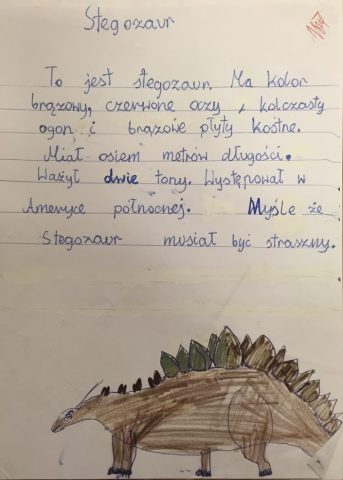 Stegozaur
To jest stegozaur. Ma kolor
brązowy, czerwone oczy, kolczasty
ogon i brązowe płyty kostne.
Miał osiem metrów długości.
Ważył dwie tony. Występował w
Ameryce północnej. Myśle że
Stegozaur musiał być straszny.